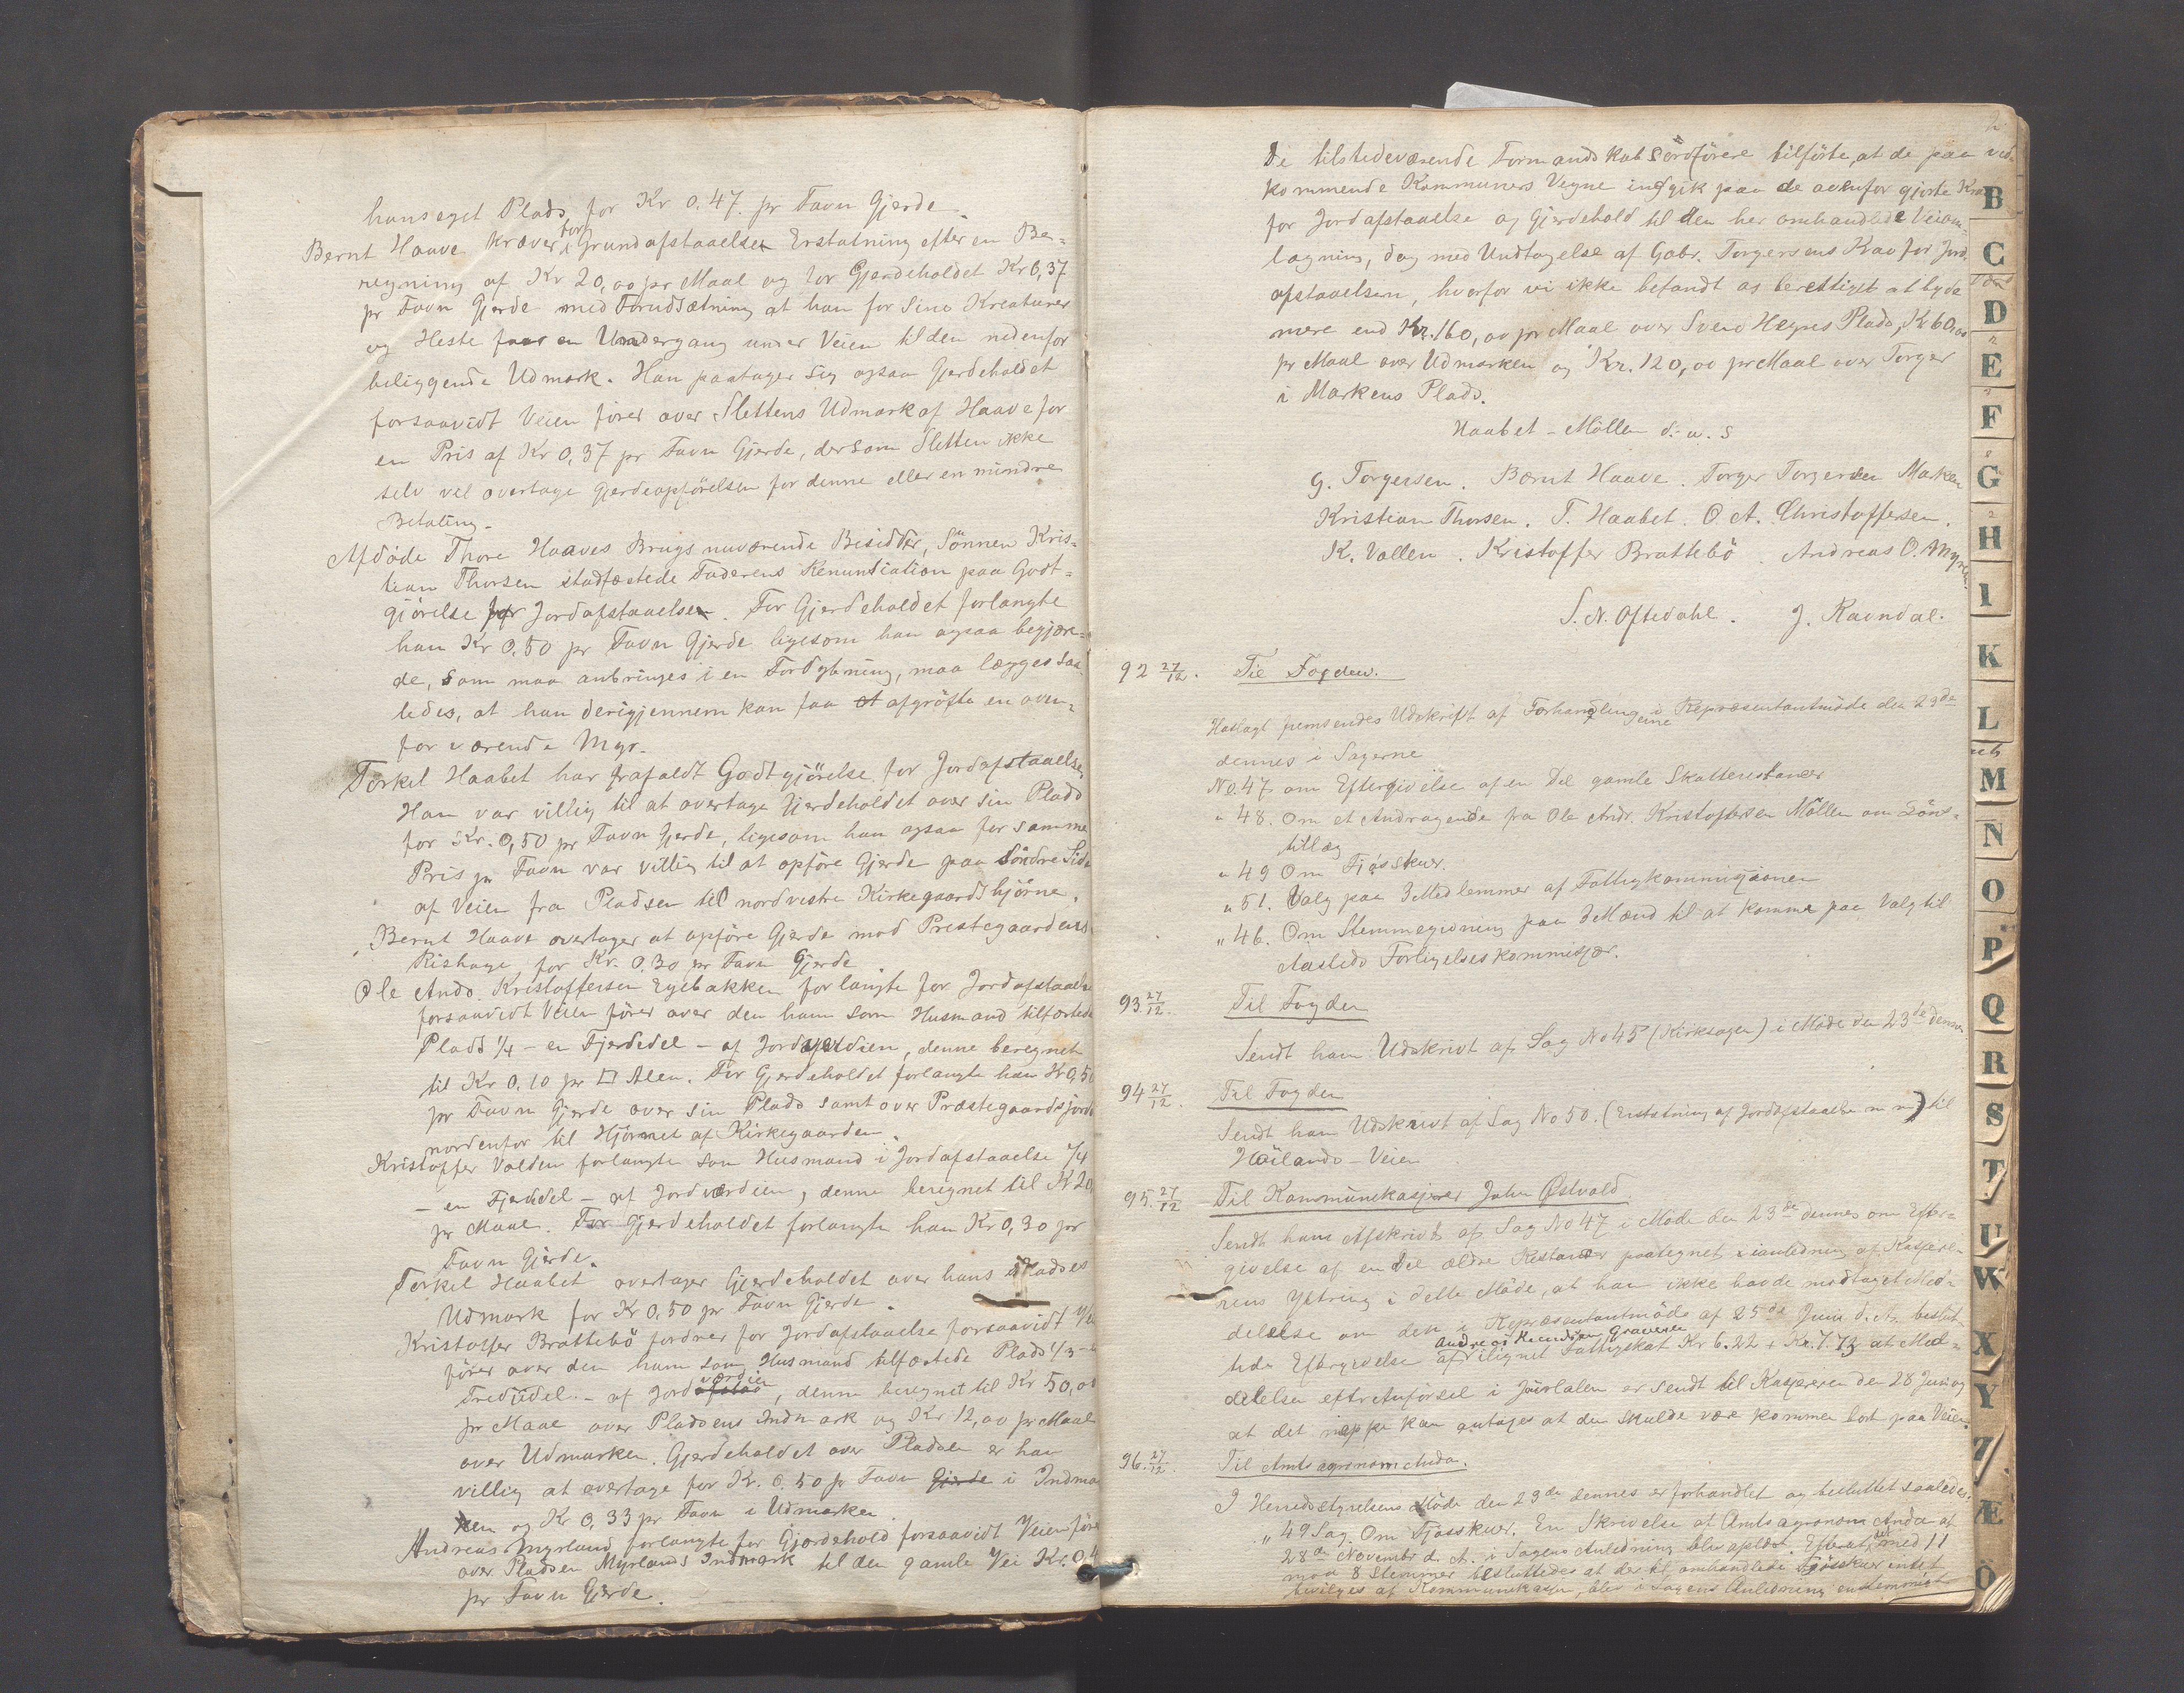 hans eget Plads, for Kr 0.47. pr Favn Gjerde.
Bernt Haave kræver for Grundafstaaelsen Erstatning efter en Be-
regning af Kr 20,00 pr Maal og for Gjerdeholdet Kr 0,37
pr Favn Gjerde med Forudsætning at han for sine Kreaturer
og Heste faar en Undergang under Veien til den nedenfor
beliggende Udmark. Han paatager sig ogsaa Gjerdeholdet
forsaavidt Veien fører over Slettens Udmark af Haave for
en Pris af Kr 0,37 pr Favn Gjerde, dersom Sletten ikke
selv vil overtage Gjerdeopførelsen for denne eller en mindre
Betaling.
Afdøde Thore Haaves Brugs nuværende Besidder, Sønnen Kris-
tian Thorsen stadfæstede Faderens Renuntiation paa Godt-
gjørelse for Jordafstaaelsen. For Gjerdeholdet forlangte
han Kr 0,50 pr Favn Gjerde ligesom han ogsaa begjære-
de, som maa anbringes i en Fordybning, maa lægges saa-
ledes, at han derigjennem kan faa at afgrøfte en oven-
for værende Myr.
Torkel Haabet har frafaldt Godtgjörelse for Jordafstaaelse,
Han var villig til at overtage Gjerdeholdet over sin Plads
for Kr. 0,50 pr Favn Gjerde, ligesom han ogsaa for samme
Pris pr Favn var villig til at opføre Gjerde paa Söndre Side
af Veien fra Pladsen til nordvestre Kirkegaardshjörne.
Bernt Haave overtager at opføre Gjerde mod Prestegaardens
Rishage for Kr. 0.30 pr Favn Gjerde
Ole Ands. Kristoffersen Egebakken forlangte for Jordafstaaelse
forsaavidt Veien fører over den ham som Husmand tilfæstede
Plads 1/4 - en Fjerdedel - af Jordværdien, denne beregnet
til Kr 0,10 pr □ Alen. For Gjerdeholdet forlangte han Kr 0,50
pr Favn Gjerde over sin Plads samt over Præstegaardsjord
nordenfor til Hjørnet af Kirkegaarden.
Kristoffer Valden forlangte som Husmand i Jordafstaaelse 1/4
- en Fjerdedel - af Jordværdien, denne beregnet til Kr 20,
pr Maal. For Gjerdeholdet forlangte han Kr 0,30 pr
Favn Gjerde.
Torkel Haabet overtager Gjerdeholdet over hans Pladses
Udmark for Kr 0,50 pr Favn Gjerde.
Kristoffer Brattebö fordrer for Jordafstaaelse forsaavidt Veien
fører over den ham som Husmand tilfæstede Plads 1/3 - en
Trediedel - af Jordværdien, denne beregnet til Kr 50,00
pr Maal over Pladsens Indmark og Kr 12,00 pr Maal
over Udmarken. Gjerdeholdet over Pladsen er han
villig at overtage for Kr. 0.50 pr Favn Gjerde i Indmar
ken og Kr 0,33 pr Favn i Udmarken.
Andreas Myrland forlangte for Gjerdehold forsaavidt Veien fører
over Pladsen Myrlands Indmark til den gamle Vei Kr. 0,4
pr Favn Gjerde.
De tilstedeværende Formandskabsordførere tilførte, at de paa ved-
kommende Kommuners Vegne indgik paa de ovenfor gjorte Krav
for Jordafstaaelse og Gjerdehold til den her omhandlede Veian-
lægning, dog med Undtagelse af Gabr. Torgersens Krav for Jord-
afstaaelsen, hvorfor vi ikke befandt os berettiget at byde
mere end Kr. 160,00 pr Maal over Svend Hegres Plads, Kr 60,00
pr Maal over Udmarken og Kr. 120,00 pr Maal over Torger
i Markens Plads.
Haabet - Möllen d. u. s
G. Torgersen. Bernt Haave. Torger Torgersen Marken
Kristian Thorsen. T. Haabet. O. A. Christoffersen.
K. Vallen. Kristoffer Brattebö Andreas O. Myrland
S. N. Oftedahl. J. Ravndal.
92 27/12. Til Fogden.
Hoslagt fremsendes Udskrift af Forhandlingerne i Repræsentantmöde den 23de
dennes i Sagerne
No. 47 om Eftergivelse af en Del gamle Skatterestancer
" 48. Om et Andragende fra Ole Andr. Kristoffersen Möllen om Löns-
tillæg
" 49 Om Fjøsskuer.
" 51. Valg paa 3 Medlemmer af Fattigkommissjonen
" 46. Om Stemmegivning paa 3 Mænd til at komme paa Valg til
Aasteds Forligelseskommissær.
93 27/12. Til Fogden
Sendt ham Udskrivt af Sag No 45 (Kirksagen) i Möde den 23de dennes
94 27/12. Til Fogden
Sendt ham Udskrivt af Sag No 50. (Erstatning af Jordafstaaelse m m) til
Höilands-Veien
95. 27/12 Til Kommunekasserer John Østvold
Sendt ham Afskrivt af Sag No 47 i Möde den 23de dennes om Efter-
givelse af en Del ældre Restancer paategnet i anledning af Kassere-
rens Yttring i dette Möde, at han ikke havde modtaget Med-
delelse om den i Repræsentantmöde af 25de Juni d. A. beslut-
tede Eftergivelse af Andreas Knudsen Graveren ilignet Fattigskat Kr 6.22 + Kr. 7.73 at Med-
delelsen efter Anførsel i Journalen er sendt til Kassereren den 28 Juni og
at det neppe kan antages at den skulde være kommen bort paa Veien.
96. 27/12. Til Amtsagronom Anda.
I Herredsstyrelsens Möde den 23de dennes er forhandlet og besluttet saaledes:
" 49 Sag. Om Fjøsskuer. En Skrivelse af Amtsagronom Anda af
28de November d. A. i Sagens Anledning blev oplæst. Efterat det med 11
mod 8 Stemmer besluttedes at der til omhandlede Fjösskuer intet
bevilges af Kommunekassen, blev i Sagens Anledning enstemmigt
B
C
D
E
F
G
H
I
K
L
M
N
O
P
Q
R
S
T
U
W
X
Y
Z
Æ
Ö